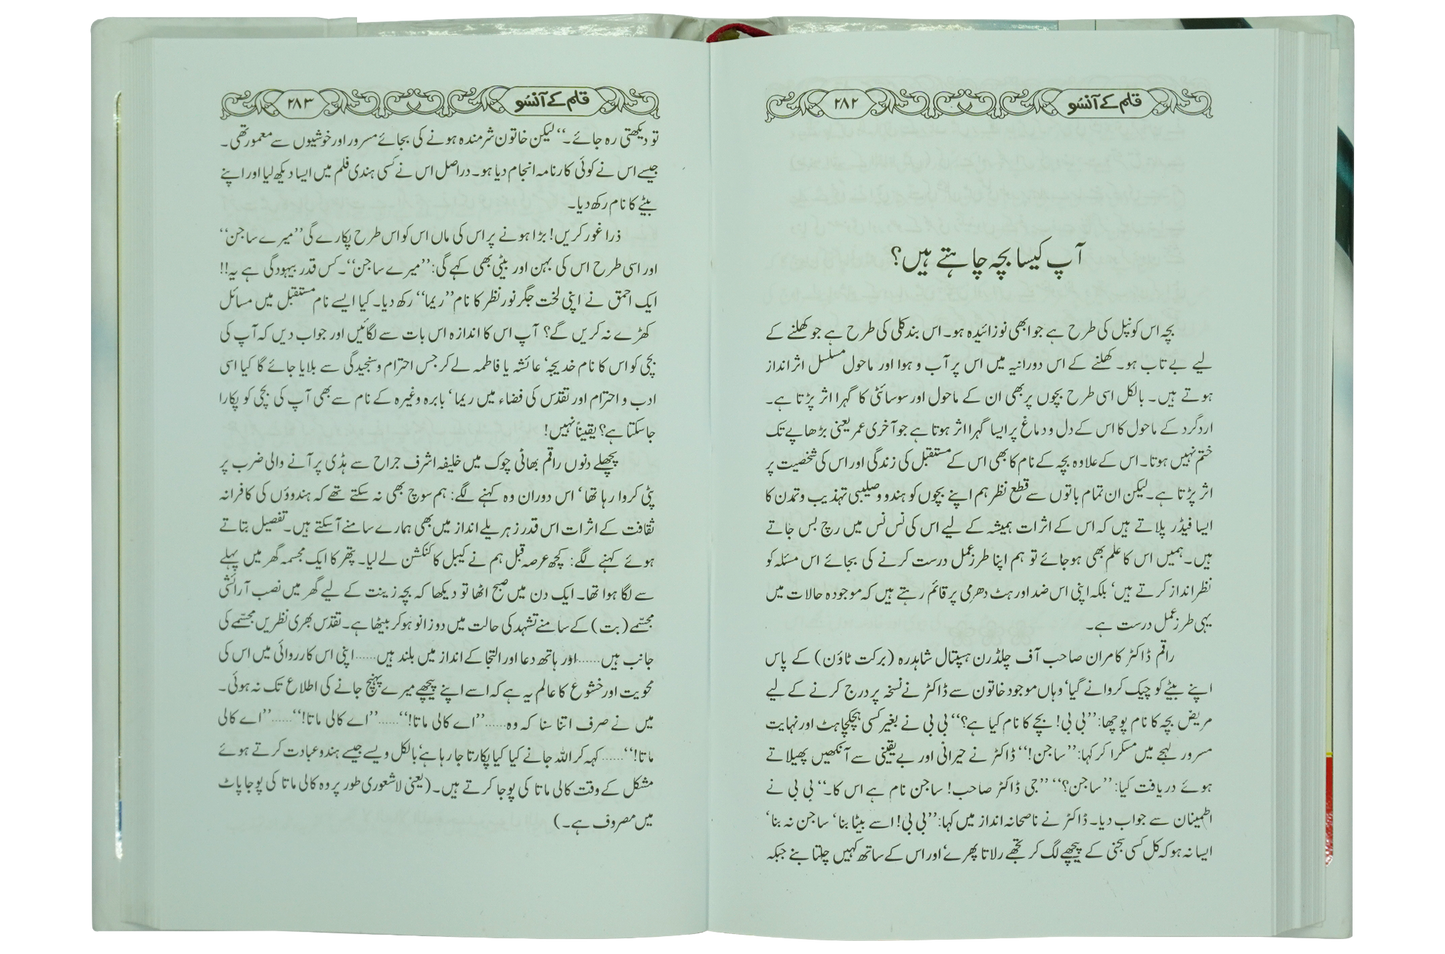 قلم کے آنسُو ۲۸۲
آپ کیسا بچہ چاہتے ہیں؟
بچہ اس کونپل کی طرح ہے جو ابھی نوزائیدہ ہو۔ اس بند کلی کی طرح ہے جو کھلنے کے
لیے بے تاب ہو۔ کھلنے کے اس دورانیہ میں اس پر آب و ہوا اور ماحول مسلسل اثر انداز
ہوتے ہیں۔ بالکل اسی طرح بچوں پر بھی ان کے ماحول اور سوسائٹی کا گہرا اثر پڑتا ہے۔
اردگرد کے ماحول کا اس کے دل و دماغ پر ایسا گہرا اثر ہوتا ہے جو آخری عمر یعنی بڑھاپے تک
ختم نہیں ہوتا۔ اس کے علاوہ بچہ کے نام کا بھی اس کے مستقبل کی زندگی اور اس کی شخصیت پر
اثر پڑتا ہے۔ لیکن ان تمام باتوں سے قطع نظر ہم اپنے بچوں کو ہندو وصلیبی تہذیب وتمدن کا
ایسا فیڈر پلاتے ہیں کہ اس کے اثرات ہمیشہ کے لیے اس کی نس نس میں رچ بس جاتے
ہیں۔ ہمیں اس کا علم بھی ہو جائے تو ہم اپنا طرزِعمل درست کرنے کی بجائے اس مسئلہ کو
نظر انداز کرتے ہیں‘ بلکہ اپنی اس ضد اور ہٹ دھرمی پر قائم رہتے ہیں کہ موجودہ حالات میں
یہی طرزِعمل درست ہے۔
راقم ڈاکٹر کامران صاحب آف چلڈرن ہسپتال شاہدرہ (برکت ٹاؤن) کے پاس
اپنے بیٹے کو چیک کروانے گیا‘ وہاں موجود خاتون سے ڈاکٹر نے نسخہ پر درج کرنے کے لیے
مریض بچہ کا نام پوچھا: ’’بی بی! بچے کا نام کیا ہے؟‘‘ بی بی نے بغیر کسی ہچکچاہٹ اور نہایت
مسرور لہجے میں مسکرا کر کہا: ’’ساجن!‘‘ ڈاکٹر نے حیرانی اور بے یقینی سے آنکھیں پھیلاتے
ہوئے دریافت کیا: ’’ساجن؟‘‘ ’’جی ڈاکٹر صاحب! ساجن نام ہے اس کا۔‘‘ بی بی نے
اطمینان سے جواب دیا۔ ڈاکٹر نے ناصحانہ انداز میں کہا: ’’بی بی! اسے بیٹا بنا‘ ساجن نہ بنا‘
ایسا نہ ہو کہ کل کسی سجنی کے پیچھے لگ کر تجھے رلاتا پھرے‘ اور اس کے ساتھ کہیں چلتا بنے جبکہ
قلم کے آنسُو ۲۸۳
تو دیکھتی رہ جائے۔‘‘ لیکن خاتون شرمندہ ہونے کی بجائے مسرور اور خوشیوں سے معمور تھی۔
جیسے اس نے کوئی کارنامہ انجام دیا ہو۔ دراصل اس نے کسی ہندی فلم میں ایسا دیکھ لیا اور اپنے
بیٹے کا نام رکھ دیا۔
ذرا غور کریں! بڑا ہونے پر اس کی ماں اس کو اس طرح پکارے گی ’’میرے ساجن‘‘
اور اسی طرح اس کی بہن اور بیٹی بھی کہے گی: ’’میرے ساجن‘‘۔ کس قدر بیہودگی ہے یہ!!
ایک احمق نے اپنی لخت جگر نور نظر کا نام ’’ریما‘‘ رکھ دیا۔ کیا ایسے نام مستقبل میں مسائل
کھڑے نہ کریں گے؟ آپ اس کا اندازہ اس بات سے لگائیں اور جواب دیں کہ آپ کی
بچی کو اس کا نام خدیجہ‘ عائشہ یا فاطمہ لے کر جس احترام وسنجیدگی سے بلایا جائے گا کیا اسی
ادب و احترام اور تقدّس کی فضاء میں ریما‘ بابرہ وغیرہ کے نام سے بھی آپ کی بچی کو پکارا
جا سکتا ہے؟ یقیناً نہیں!
پچھلے دنوں راقم بھاٹی چوک میں خلیفہ اشرف جراح سے ہڈی پر آنے والی ضرب پر
پٹی کروا رہا تھا‘ اس دوران وہ کہنے لگے: ہم سوچ بھی نہ سکتے تھے کہ ہندوؤں کی کافرانہ
ثقافت کے اثرات اس قدر زہریلے انداز میں بھی ہمارے سامنے آسکتے ہیں۔ تفصیل بتاتے
ہوئے کہنے لگے: کچھ عرصہ قبل ہم نے کیبل کا کنکشن لے لیا۔ پتھر کا ایک مجسمہ گھر میں پہلے
سے لگا ہوا تھا۔ ایک دن میں صبح اٹھا تو دیکھا کہ بچہ زینت کے لیے گھر میں نصب آرائشی
مجسّمے (بت) کے سامنے تشہد کی حالت میں دو زانو ہو کر بیٹھا ہے۔ تقدّس بھری نظریں مجسّمے کی
جانب ہیں...... اور ہاتھ دعا اور التجا کے انداز میں بلند ہیں...... اپنی اس کارروائی میں اس کی
محویت اور خشوع کا عالم یہ ہے کہ اسے اپنے پیچھے میرے پہنچ جانے کی اطلاع تک نہ ہوئی۔
میں نے صرف اتنا سنا کہ وہ...... ’’اے کالی ماتا!‘‘...... ’’اے کالی ماتا!‘‘...... ’’اے کالی
ماتا!‘‘...... کہہ کر اللہ جانے کیا کیا پکارتا جا رہا ہے‘ بالکل ویسے جیسے ہندو عبادت کرتے ہوئے
مشکل کے وقت کالی ماتا کی پوجا کرتے ہیں۔ (یعنی لاشعوری طور پر وہ کالی ماتا کی پوجا پاٹ
میں مصروف ہے۔)